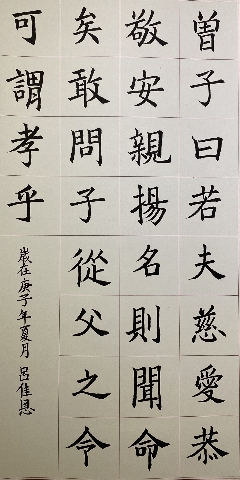 曾子曰若夫慈愛恭
敬安親揚名則聞命
矣敢問子從父之令
可謂孝乎
歲在庚子年夏月 呂佳恩